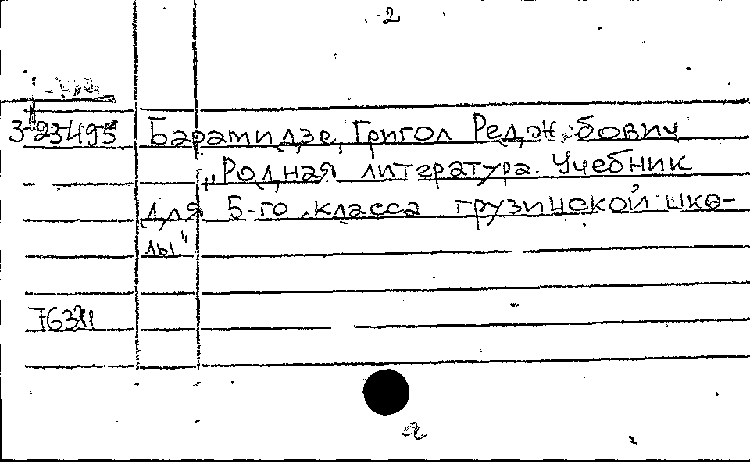 2
3-23495 Барамидзе, Григол Редж.бович
„Родная литература. Учебник
для 5-го класса грузинской шко-
лы"
76381